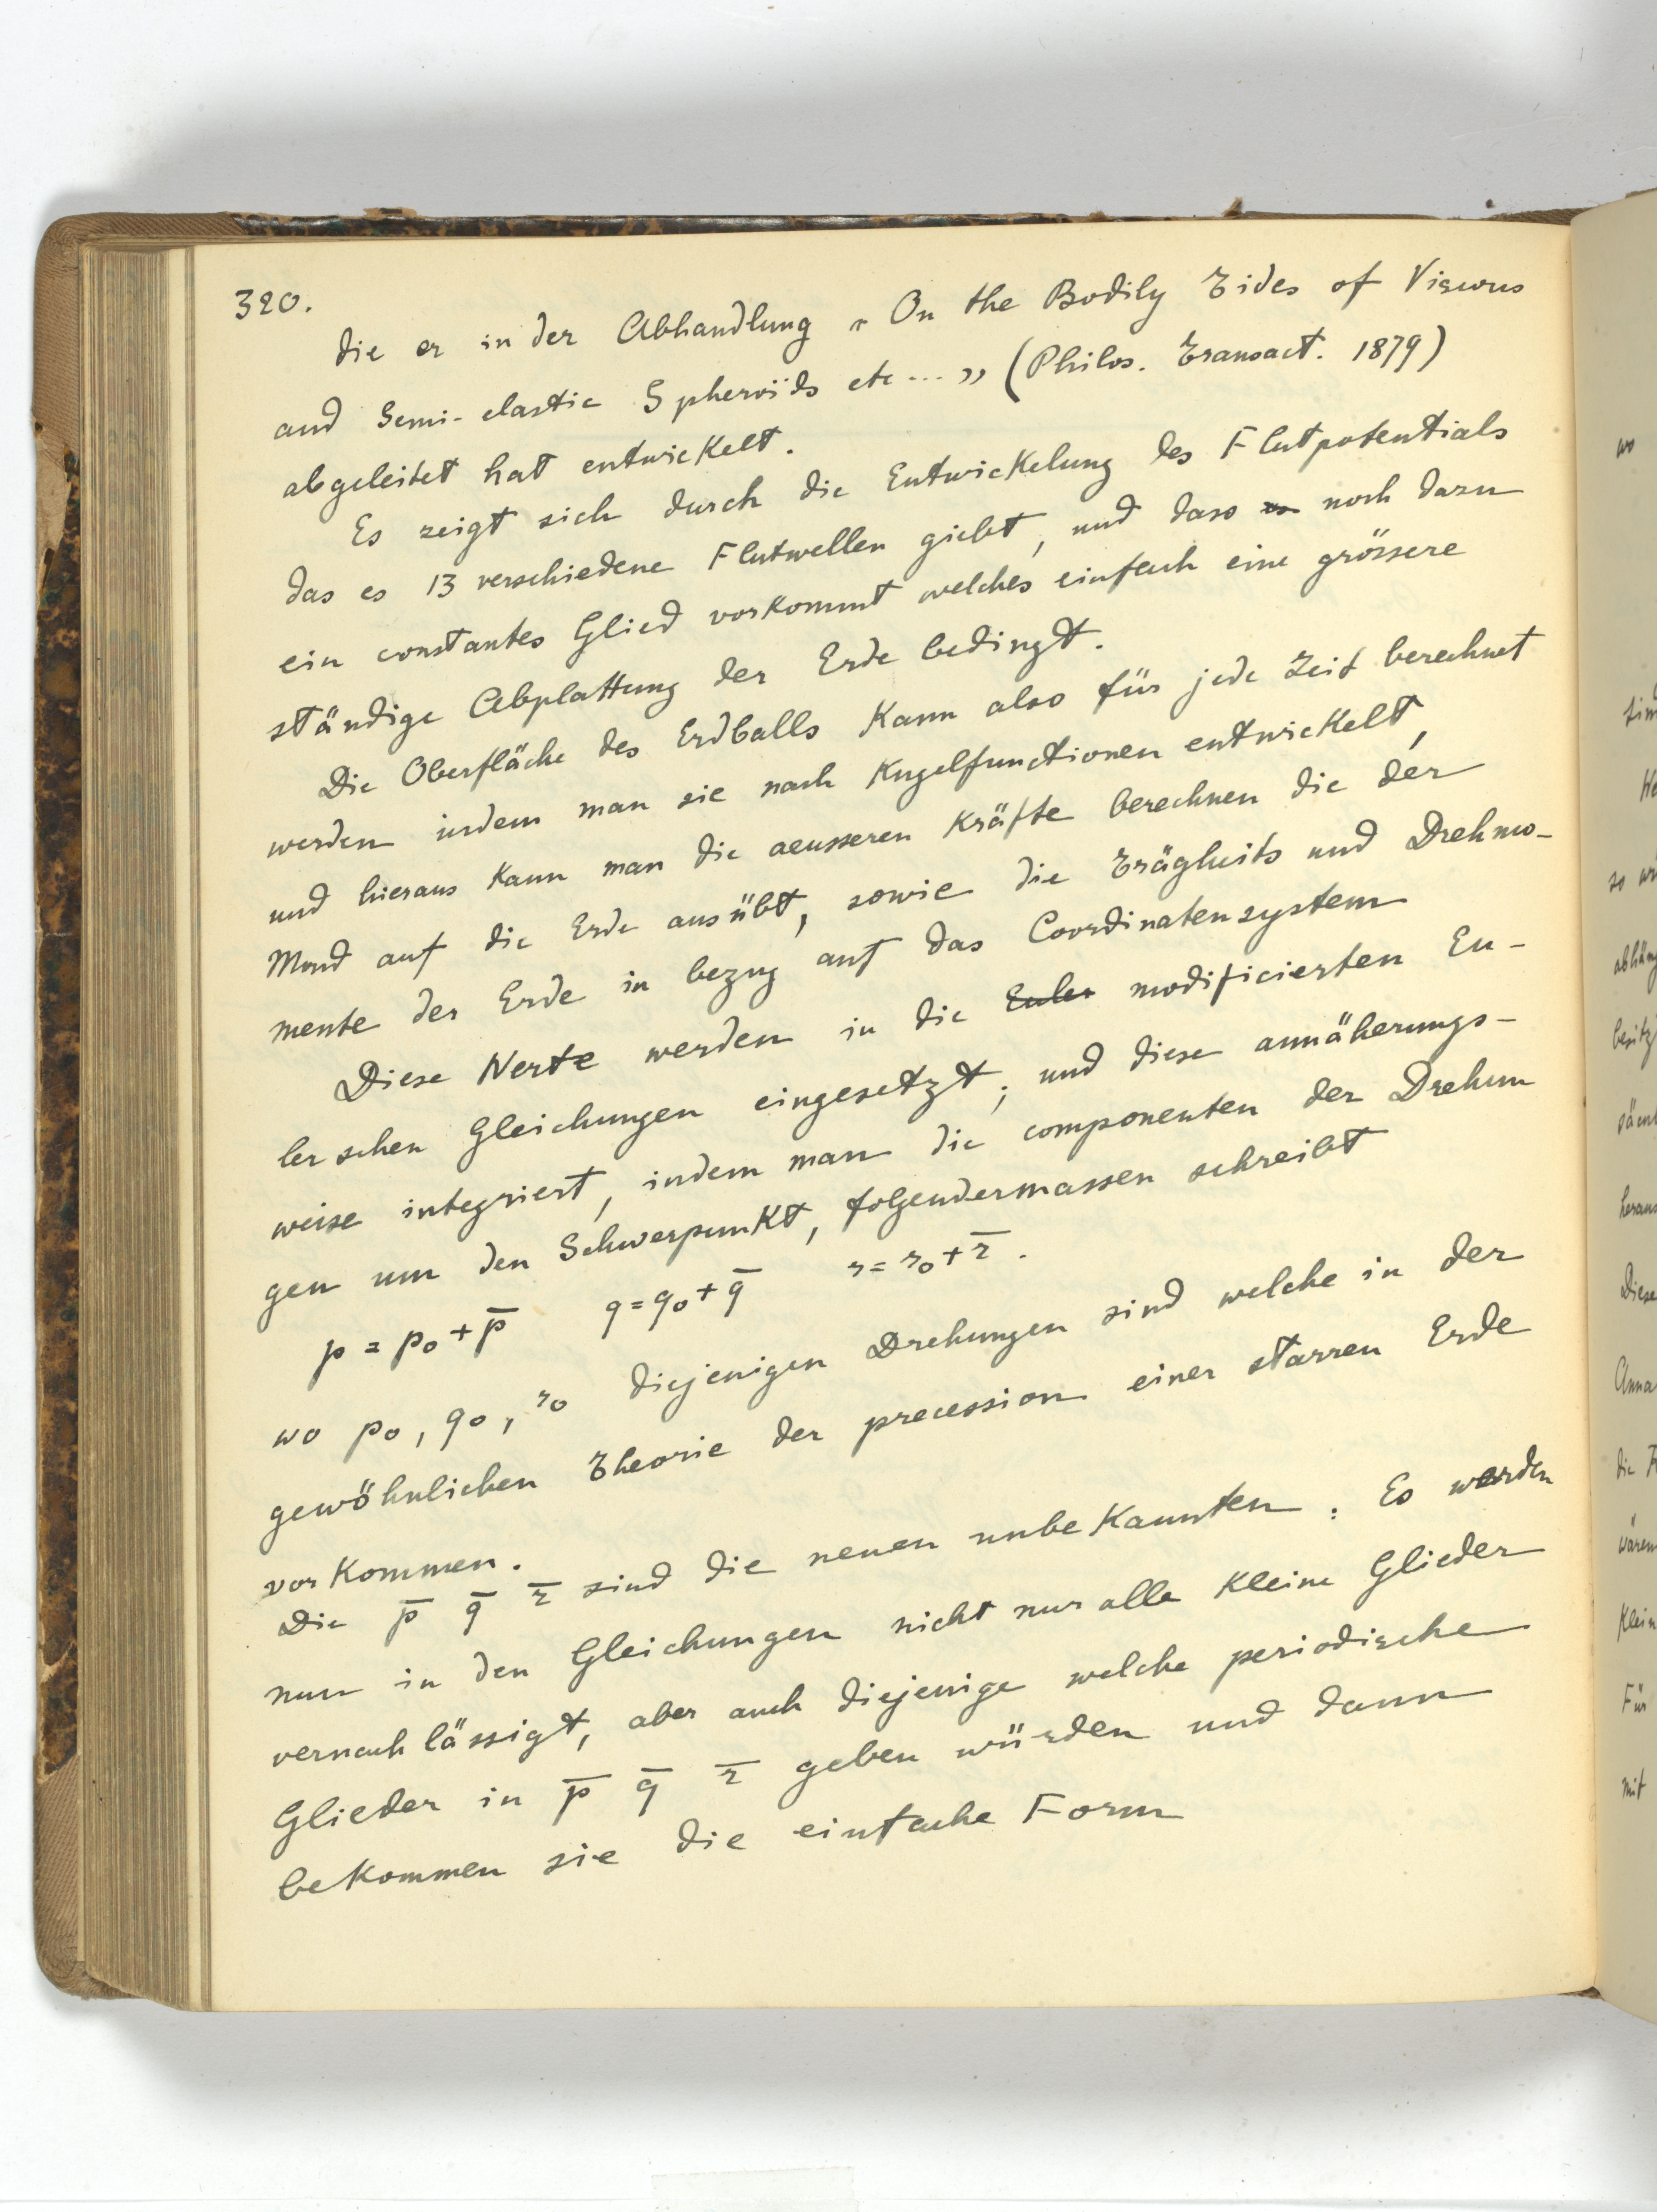 320.
die er in der Abhandlung „ On the Bodily Tides of Viscous
and Semi-elastic Spheroïds etc ... ” (Philos. Transact. 1879)
abgeleitet hat entwickelt.
Es zeigt sich durch die Entwickelung des Flutpotentials
das es 13 verschiedene Flutwellen giebt, und dass noch dazu
ein constantes Glied vorkommt welches einfach eine grössere
ständige Abplattung der Erde bedingt.
Die Oberfläche des Erdballs kann also für jede Zeit berechnet
werden indem man sie nach Kugelfunctionen entwickelt,
und hieraus kann man die aeusseren Kräfte berechnen die der
Mond auf die Erde ausübt, sowie die Trägheits und Drehmo-
mente der Erde in bezug auf das Coordinatensystem
Diese Werte werden in die Euler modificierten Eu-
lerschen Gleichungen eingesetzt, und diese annäherungs-
weise integriert, indem man die componenten der Drehun
gen um den Schwerpunkt, folgendermassen schreibt
p = p₀ + p̄ q = q₀ + q̄ r = r₀ + r̄ .
wo p₀, q₀, r₀ diejenigen Drehungen sind welche in der
gewöhnlichen Theorie der precession einer starren Erde
vorkommen.
Die p̄ q̄ r̄ sind die neuen unbekannten. Es werden
nun in den Gleichungen nicht nur alle kleine Glieder
vernachlässigt, aber auch diejenige welche periodische
Glieder in p̄ q̄ r̄ geben würden und dann
bekommen sie die einfache Form
wo
He
so wü
besitz
heraus
Diese
Anna
die F
wären
klein
Für
mit